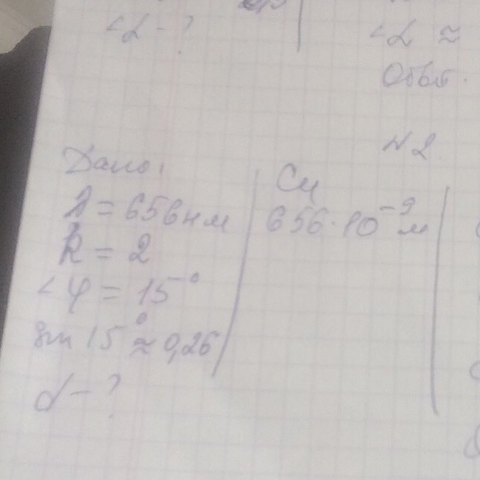 <α - ?
<α ≈
Ответ.
№2
Дано:
λ = 656 нм
k = 2
<φ = 15°
sin 15° ≈ 0,26
d - ?
Си
656·10⁻⁹ м